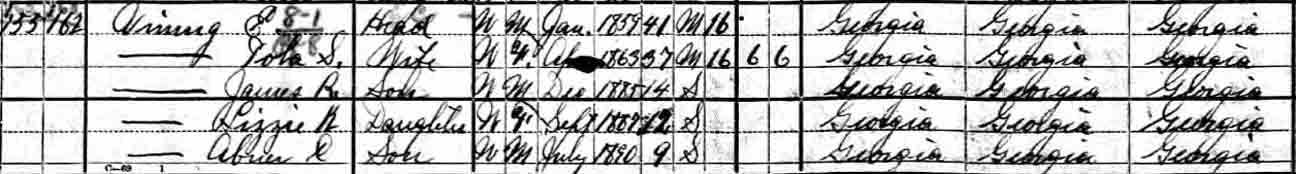 153 162 Vining E 8-1 Head W M Jan. 1859 41 M 16 Georgia Georgia Georgia
—— Iola S. Wife W F. Ap 1863 37 M 16 6 6 Georgia Georgia Georgia
—— James R. Son W M Dec 1885 14 S Georgia Georgia Georgia
—— Lizzie Daughter W F. Sept 1887 12 S Georgia Georgia Georgia
—— Abner C Son W M July 1890 9 S Georgia Georgia Georgia